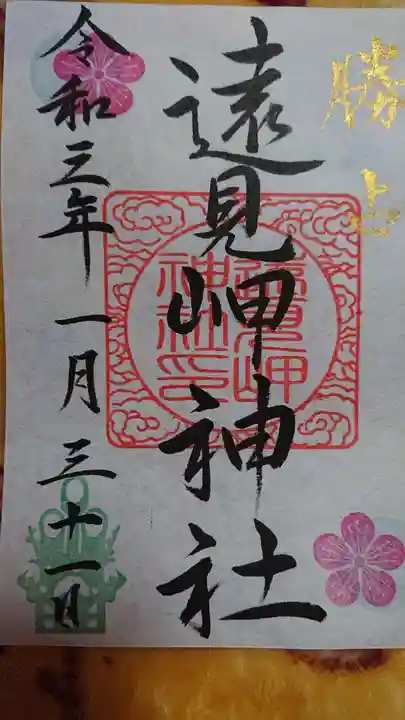 勝占
遠見岬神社
遠見岬
神社印
令和三年一月三十一日